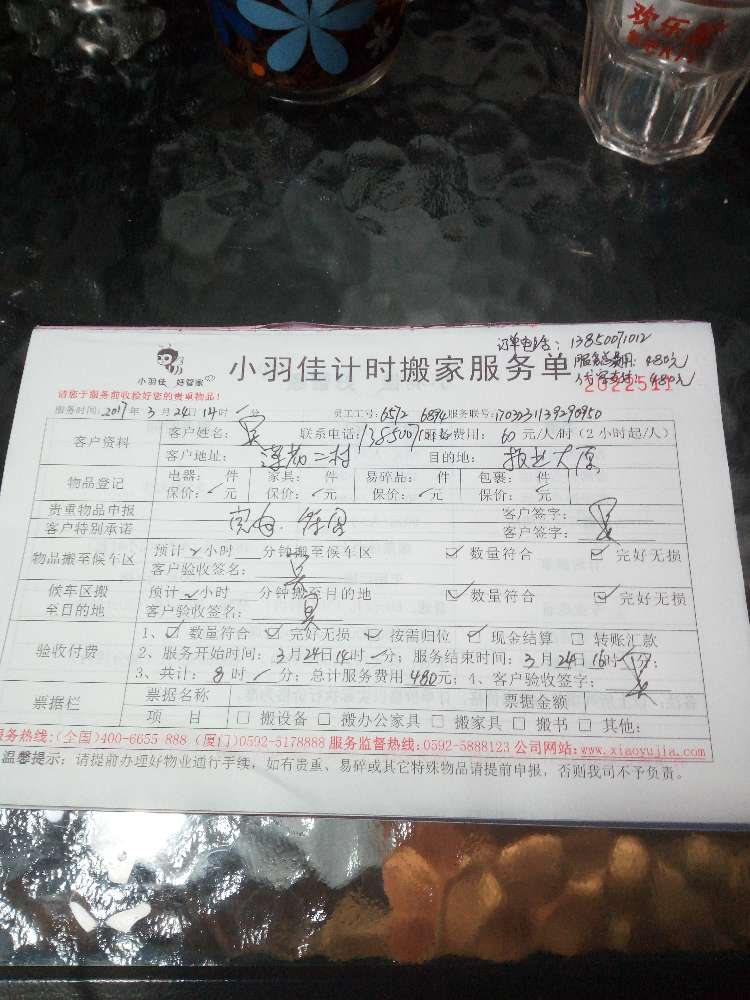 欢乐
订单电话：13850071012
服务总费用：480元
480元
小羽佳 好管家
小羽佳计时搬家服务单
2022511
请您于服务前收捡好您的贵重物品！
服务时间：2017年 3月 24日 14时 一分 员工工号：6572 6894 服务联号：
客户资料 客户姓名：吴 联系电话：1385007 服务费用：60 元/人/时（2小时起/人）
客户地址： 二村 目的地：
物品登记 电器： 件 家具： 件 易碎品： 件 包裹： 件
保价： 元 保价： 元 保价： 元 保价： 元
贵重物品申报 客户签字：吴
客户特别承诺 客户签字：
物品搬至候车区 预计 小时 分钟搬至候车区 ☑ 数量符合 ☑ 完好无损
客户验收签名：吴
候车区搬至目的地 预计 小时 分钟搬至目的地 ☑ 数量符合 ☑ 完好无损
客户验收签名：吴
验收付费 1、☑ 数量符合 ☑ 完好无损 ☑ 按需归位 ☑ 现金结算 □ 转账汇款
2、服务开始时间：3月24日14时一分；服务结束时间：3月24日16时一分；
3、共计：8时一分；总计服务费用480元；4、客户验收签字：吴
票据栏 票据名称 票据金额
项 目 □ 搬设备 □ 搬办公家具 □ 搬家具 □ 搬书 □ 其他：
服务热线：(全国)400-6655-888 (厦门)0592-5178888 服务监督热线：0592-5888123 公司网站：www.xiaoyujia.com
温馨提示：请提前办理好物业通行手续，如有贵重、易碎或其它特殊物品请提前申报，否则我司不予负责。